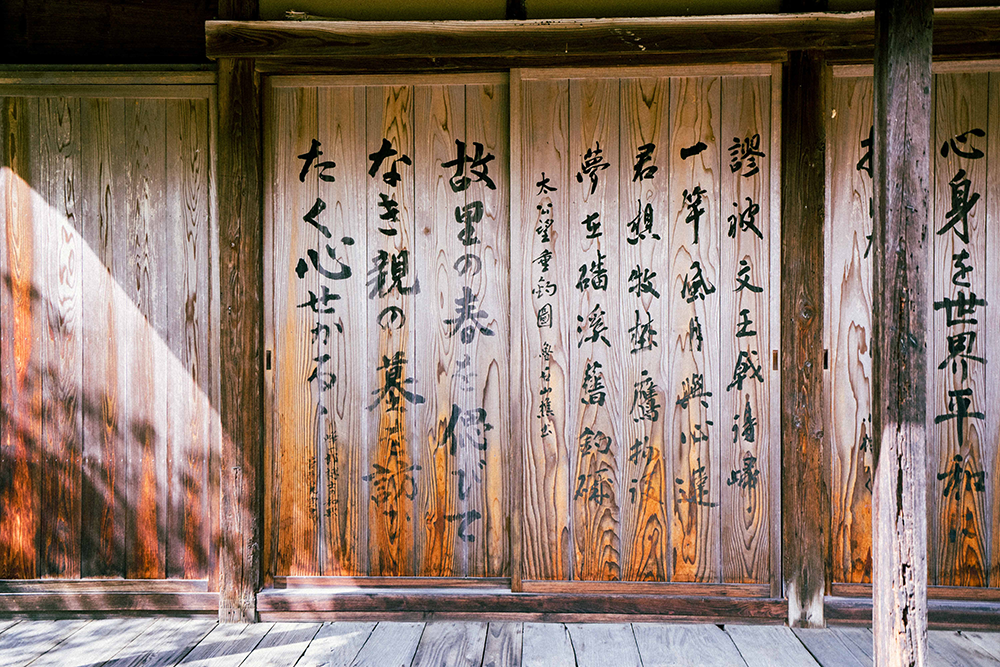 心身を世界平和に
謬被文王載得歸
一竿風月與心違
君想牧埜鷹揚後
夢在磻溪舊釣磯
太公望垂釣圖
故里の春を偲びて
なき親の墓を訪ひ
たく心せかるゝ